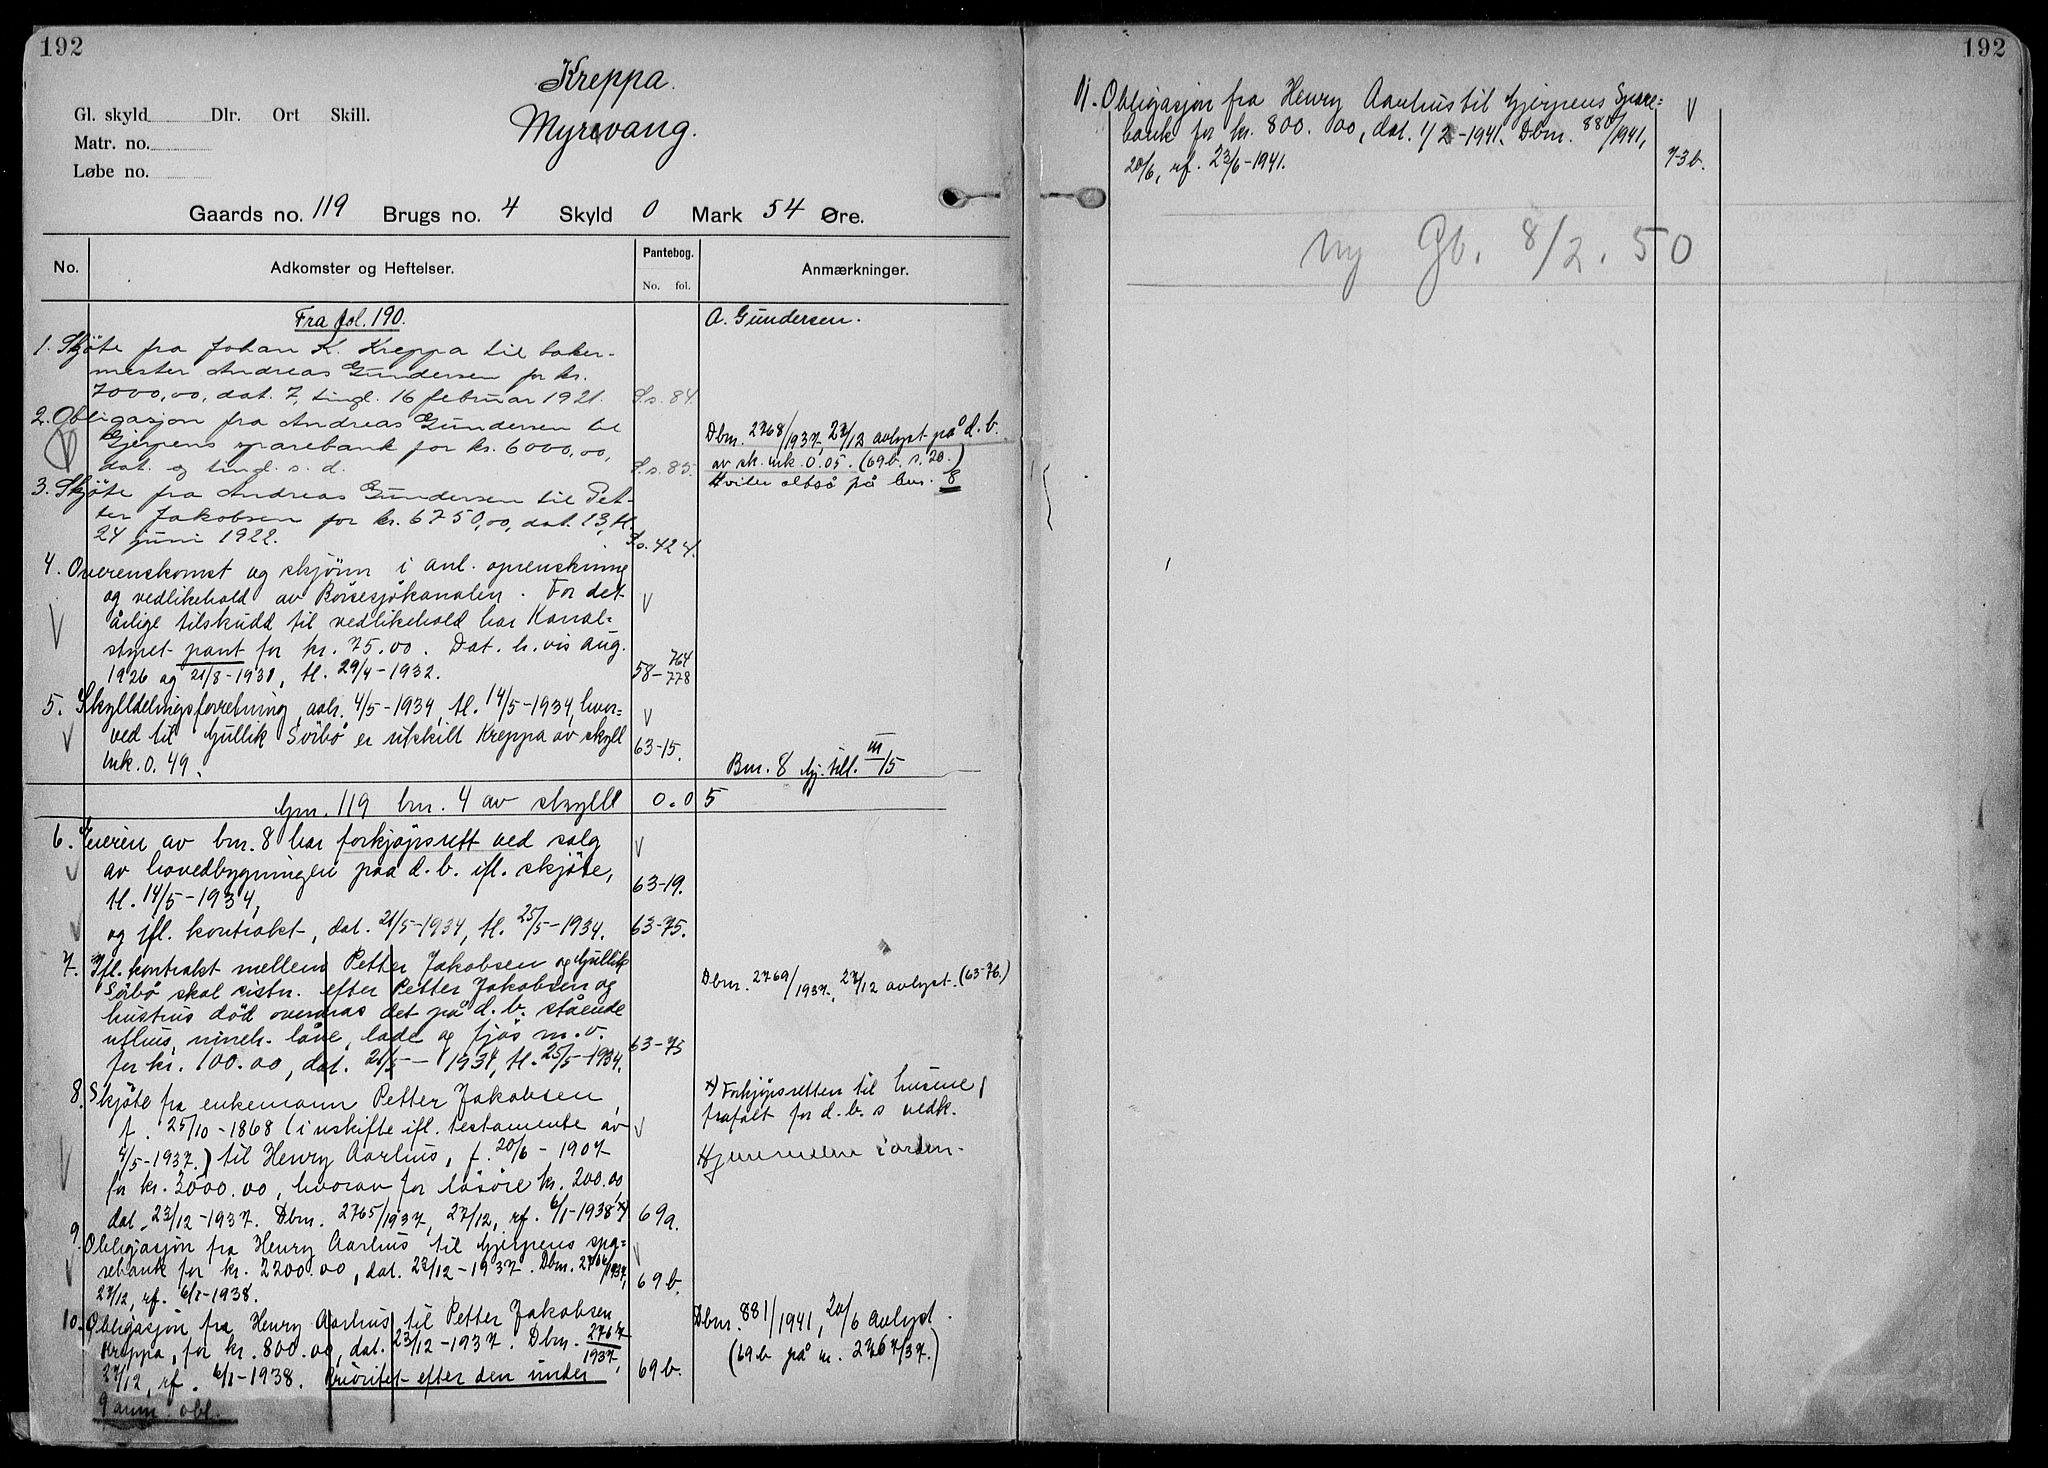 192
Kreppa.
Myrvang.
Gl. skyld Dlr. Ort Skill.
Matr. no.
Løbe no.
Gaards no. 119 Brugs no. 4 Skyld 0 Mark 54 Øre.
No. Adkomster og Heftelser. Pantebog. No. fol. Anmærkninger.
Fra fol. 190. A. Gundersen.
1. Skjöte fra Johan K. Kreppa til baker-
mester Andreas Gundersen for kr.
7000,00, dat. 7, tingl. 16 februar 1921. S.s. 84.
2. Obligasjon fra Andreas Gundersen til
Gjerpens sparebank for kr. 6000,00,
dat. og tingl. s. d. S.s. 85.
Dbnr. 2768/1937, 27/12 avlyst på d. b.
av sk. mk. 0.05. (69b. s. 20.)
Hviler altså på bnr. 8
3. Skjöte fra Andreas Gundersen til Pet-
ter Jakobsen for kr. 6750,00, dat. 13, tl.
24 juni 1922. S.s. 424.
4. Overenskomst og skjønn i anl. oprenskning
og vedlikehold av Börsesjökanalen. For det
årlige tilskudd til vedlikehold har Kanal=
styret pant for kr. 75.00. Dat. h.vis aug.
1926 og 21/8-1931, tl. 29/4-1932. 58-764 778
5. Skylddelingsforretning, avh. 4/5-1934, tl. 14/5-1934, hvor=
ved til Gullik Sörbö er utskilt Kreppa av skyld
mk. 0.49. 63-15.
Bnr. 8 Gj. till. III/15
Gnr. 119 bnr. 4 av skyld 0.05
6. Eieren av bnr. 8 har forkjøpsrett ved salg
av hovedbygningen paa d. b. ifl. skjöte,
tl. 14/5-1934, 63-19.
og ifl. kontrakt, dat. 21/5-1934, tl. 25/5-1934. 63-75.
7. Ifl. kontrakt mellem Petter Jakobsen og Gullik
Sörbö skal sistn. efter Petter Jakobsen og
hustrus död overdras det på d. b. stående
uthus, låve, lade og fjös m.v.
for kr. 100.00, dat. 21/5-1934, tl. 25/5-1934. 63-75
Dbnr. 2769/1937, 27/12 avlyst. (63-76.)
8. Skjöte fra enkemann Petter Jakobsen,
f. 25/10-1868 (i uskifte ifl. testamente av
4/5-1937.) til Henry Aarhus, f. 20/6-1907
for kr. 3000.00, hvorav for lösöre kr. 200.00,
dat. 23/12-1937. Dbnr. 2765/1937, 27/12, rf. 6/1-1938 x) 69a.
x) Forkjøpsretten til husene
frafalt for d. b. s vedk.
Hjemmelen i orden.
9. Obligasjon fra Henry Aarhus til Gjerpens spa=
rebank for kr. 2200.00, dat. 23/12-1937. Dbnr. 2766/1937,
27/12, rf. 6/1-1938. 69b.
10. Obligasjon fra Henry Aarhus til Petter Jakobsen
Kreppa, for kr. 800.00, dat. 23/12-1937. Dbnr. 2767/1937,
27/12, rf. 6/1-1938. Prioritet efter den under
9 anm. obl. 69b.
Dbnr. 881/1941, 20/6 avlyst.
(69b på nr. 2767/37.)
192
11. Obligasjon fra Henry Aarhus til Gjerpens Spare=
bank for kr. 800.00, dat. 1/2-1941. Dbnr. 880/1941,
20/6, rf. 23/6-1941. 73b.
ny Gb. 8/2. 50